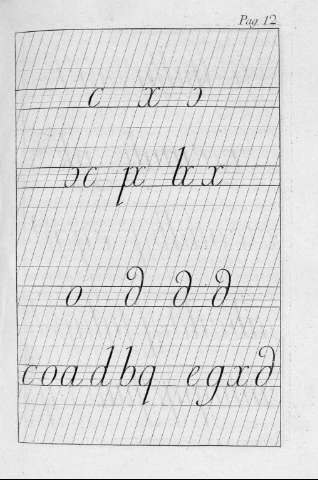 Pag. 12
c x ɔ
ɔc px lx x
o ∂ ∂ ∂
coadbq egx∂